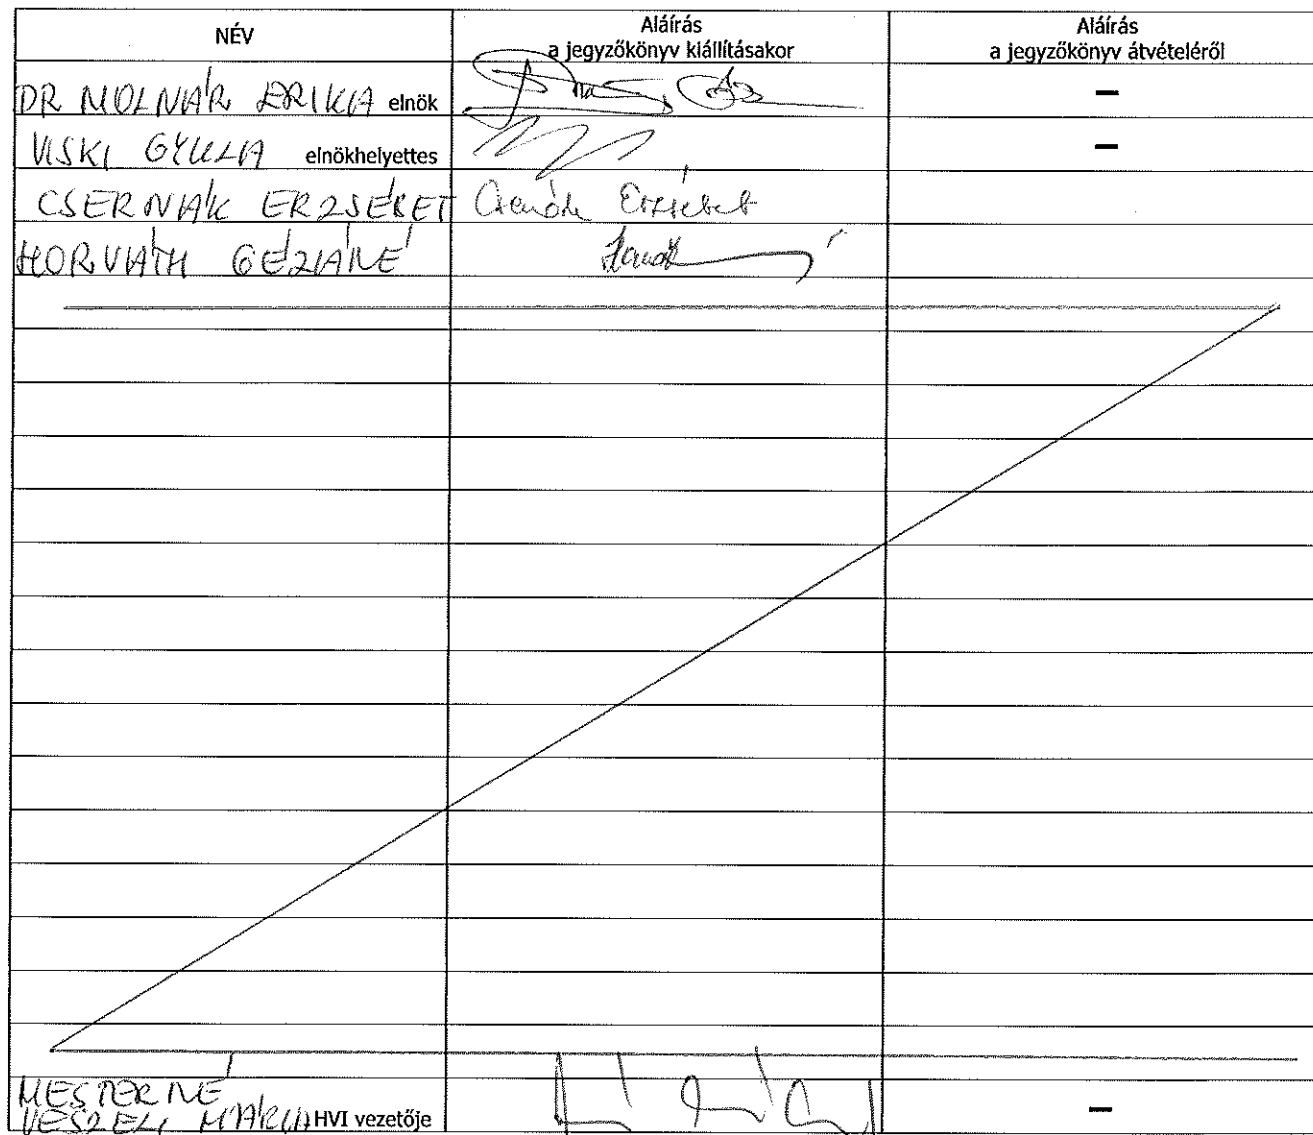 NÉV
Aláírás
a jegyzőkönyv kiállításakor
Aláírás
a jegyzőkönyv átvételéről
DR MOLNÁR ERIKA elnök
—
VISKI GYULA elnökhelyettes
—
CSERNÁK ERZSÉBET Csernák Erzsébet
HORVÁTH GÉZÁNÉ
MESTERNÉ
VESZELI MÁRIA HVI vezetője
—